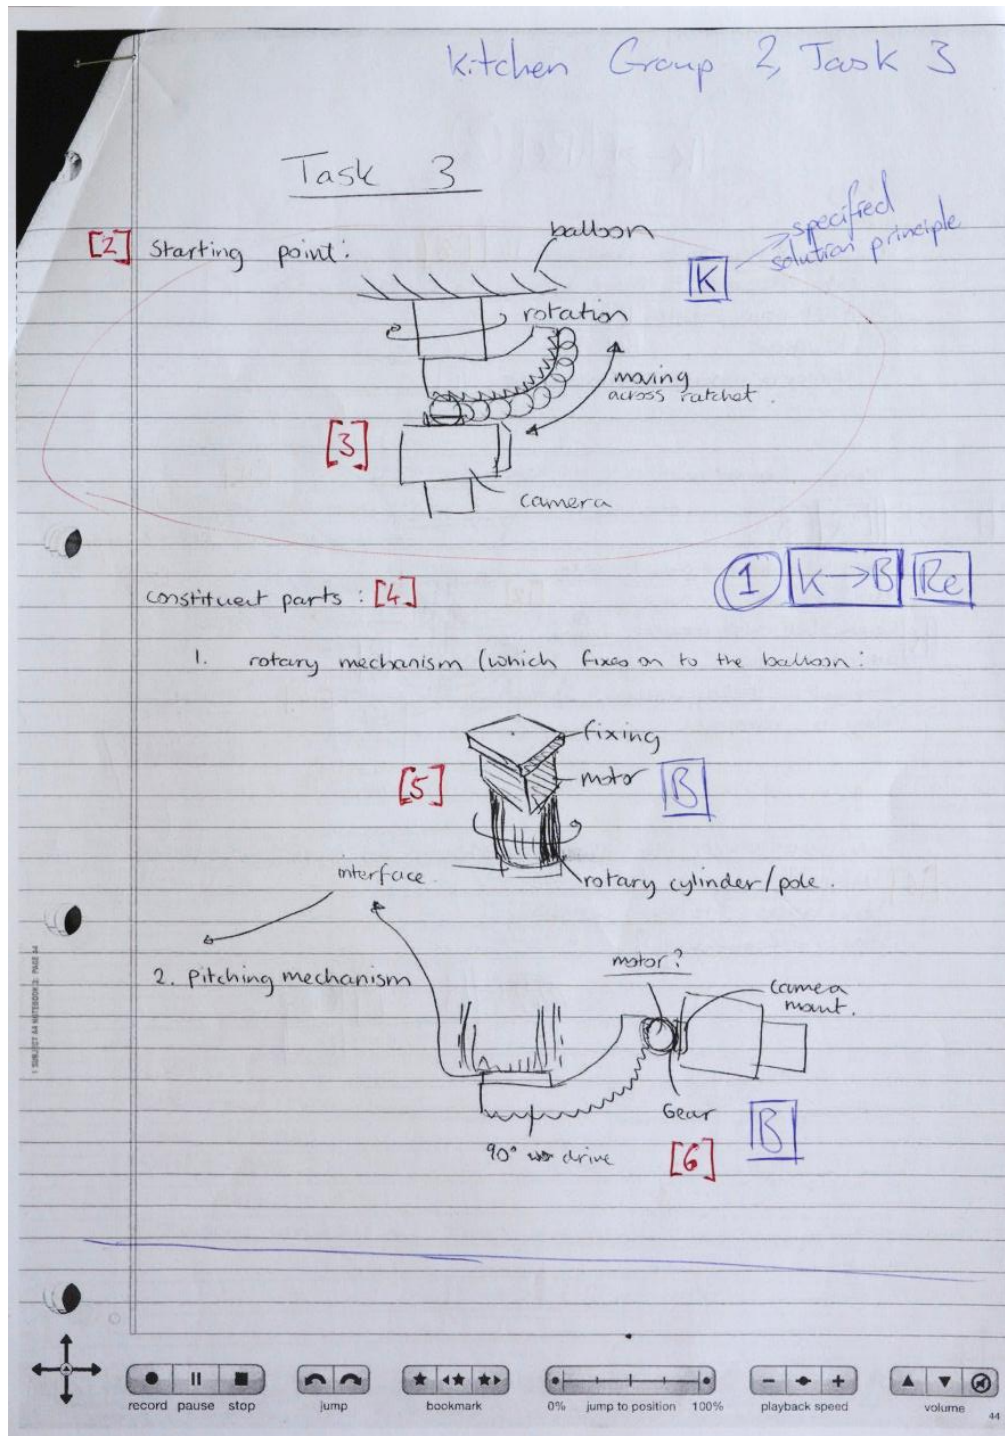 Kitchen Group 2, Task 3
Task 3
[2] Starting point:
balloon
specified
solution principle
K
rotation
moving
across ratchet.
[3]
camera
1 K→B Re
constituent parts : [4]
1. rotary mechanism (which fixes on to the balloon:
fixing
[5]
motor
B
interface
rotary cylinder/pole.
2. Pitching mechanism
motor?
camera
mount.
Gear
B
90° drive
[6]
1 SUBJECT A4 NOTEBOOK 2: PAGE 44
record pause stop
jump
bookmark
0% jump to position 100%
playback speed
volume
44